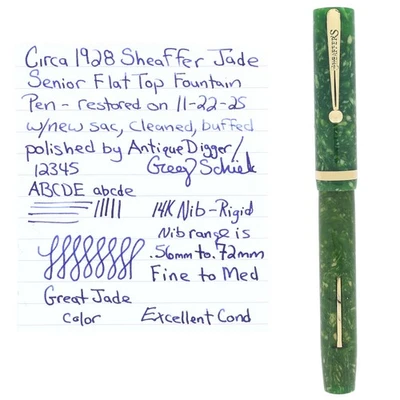 Circa 1928 Sheaffer Jade
Senior Flat Top Fountain
Pen - restored on 11-22-25
w/new sac, cleaned, buffed
polished by AntiqueDigger/
12345
Greg Schiek
ABCDE abcde
14K Nib-Rigid
Nib range is
.56mm to .72mm
Fine to Med
Great Jade
Color
Excellent Cond
SHEAFFER'S